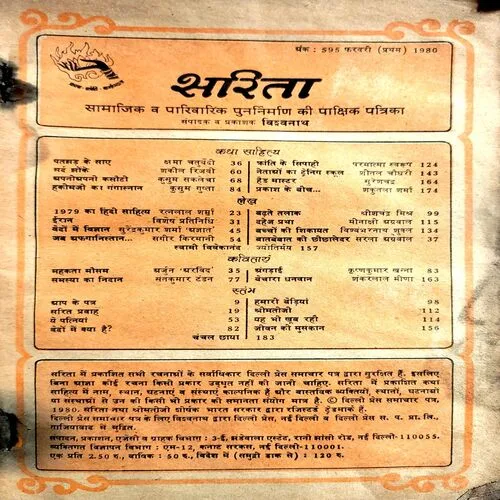 अंक : 595 फरवरी (प्रथम) 1980
सरिता
सामाजिक व पारिवारिक पुनर्निर्माण की पाक्षिक पत्रिका
संपादक व प्रकाशक विश्वनाथ
कथा साहित्य
पतझड़ के साए क्षमा चतुर्वेदी 36
सर्द झोंके शकील रिजवी 60
अपनीअपनी कसौटी कुसुम सकलेचा 68
हकीमजी का गंगास्नान कुसुम गुप्ता 84
क्रांति के सिपाही परमात्मा स्वरूप 124
नेताओं का ट्रेनिंग स्कूल शीतल चौधरी 143
हैड मास्टर सुरेशचंद्र 164
प्रकाश के बीच... शकुंतला शर्मा 174
लेख
1979 का हिंदी साहित्य रत्नलाल शर्मा 23
ईरान विशेष प्रतिनिधि 31
वेदों में विज्ञान सुरेंद्रकुमार शर्मा 'अज्ञात' 45
जब अफगानिस्तान... सगीर किरमानी 54
बढ़ते तलाक श्रीशचंद्र मिश्र 99
दहेज प्रथा मीनाक्षी अग्रवाल 115
बच्चों की शिकायत विश्वंभरनाथ शुक्ल 134
बातबेबात की छीछालेदर सरला अग्रवाल 37
स्वामी विवेकानंद ज्योतिर्मय 157
कविताएं
महकता मौसम अर्जुन 'अरविंद' 35
समस्या का निदान संतकुमार टंडन 77
अंगड़ाई कृष्णकुमार खन्ना 83
बेचारा धनवान शंकरलाल मीणा 163
स्तंभ
आप के पत्र 9
सरित प्रवाह 19
ये पत्नियां 53
वेदों में क्या है? 82
हमारी बेड़ियां 98
श्रीमतीजी 112
यह भी खूब रही 114
जीवन की मुसकान 156
चंचल छाया 183
सरिता में प्रकाशित सभी रचनाओं के सर्वाधिकार दिल्ली प्रेस समाचार पत्र द्वारा सुरक्षित हैं. इसलिए
बिना आज्ञा कोई रचना किसी प्रकार उद्धृत नहीं की जानी चाहिए. सरिता में प्रकाशित कथा
साहित्य में नाम, स्थान, घटनाएं व संस्थाएं काल्पनिक हैं और वास्तविक व्यक्तियों, स्थानों, घटनाओं
या संस्थाओं से उन की किसी भी प्रकार की समानता संयोग मात्र है. © दिल्ली प्रेस समाचार पत्र,
1980. सरिता तथा श्रीमतीजी शीर्षक भारत सरकार द्वारा रजिस्टर्ड ट्रेडमार्क हैं.
दिल्ली प्रेस समाचार पत्र के लिए विश्वनाथ द्वारा दिल्ली प्रेस, नई दिल्ली व दिल्ली प्रेस स. प. प्रा. लि.,
गाजियाबाद में मुद्रित.
संपादन, प्रकाशन, एजेंसी व ग्राहक विभाग : 3-ई, झंडेवाला एस्टेट, रानी झांसी रोड, नई दिल्ली-110055.
व्यक्तिगत विज्ञापन विभाग : एम-12, कनाट सरकस, नई दिल्ली-110001.
एक प्रति 2.50 रु., वार्षिक : 50 रु., विदेश में (समुद्री डाक से) : 120 रु.